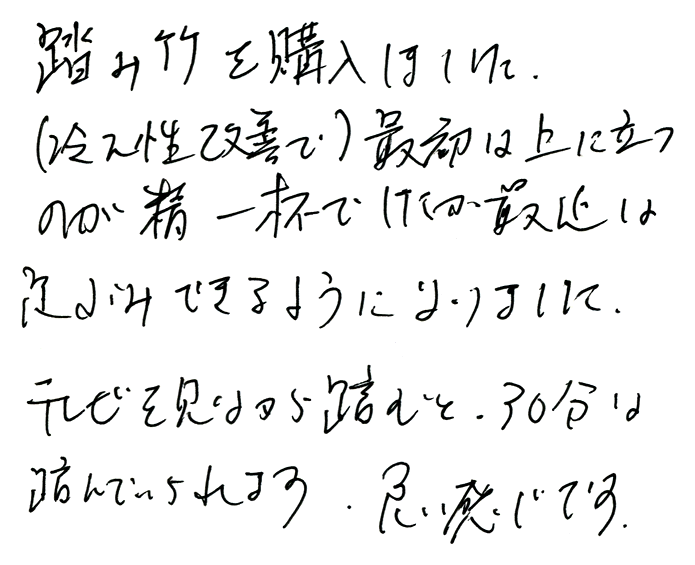 踏み竹を購入しました.
(冷え性改善で)最初は上に立つ
のが精一杯でしたが最近は
足ぶみできるようになりました.
テレビを見ながら踏むと.30分は
踏んでいられます.良い感じです.